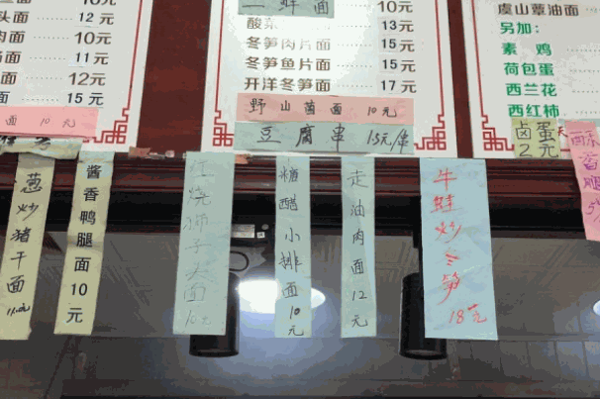 面 10元
头面 12元
肉面 10元
面 11元
面 12元
15元
面 10元
三鲜面 10元
酸菜 13元
冬笋肉片面 15元
冬笋鱼片面 15元
开洋冬笋面 17元
野山菌面 10元
豆腐串 1.5元/串
虞山蕈油面
另加:
素鸡
荷包蛋
西兰花
西红柿
卤蛋
2元
葱炒猪干面
酱香鸭腿面10元
红烧狮子头面10元
糖醋小排面10元
走油肉面12元
牛蛙炒冬笋
18元
香腿